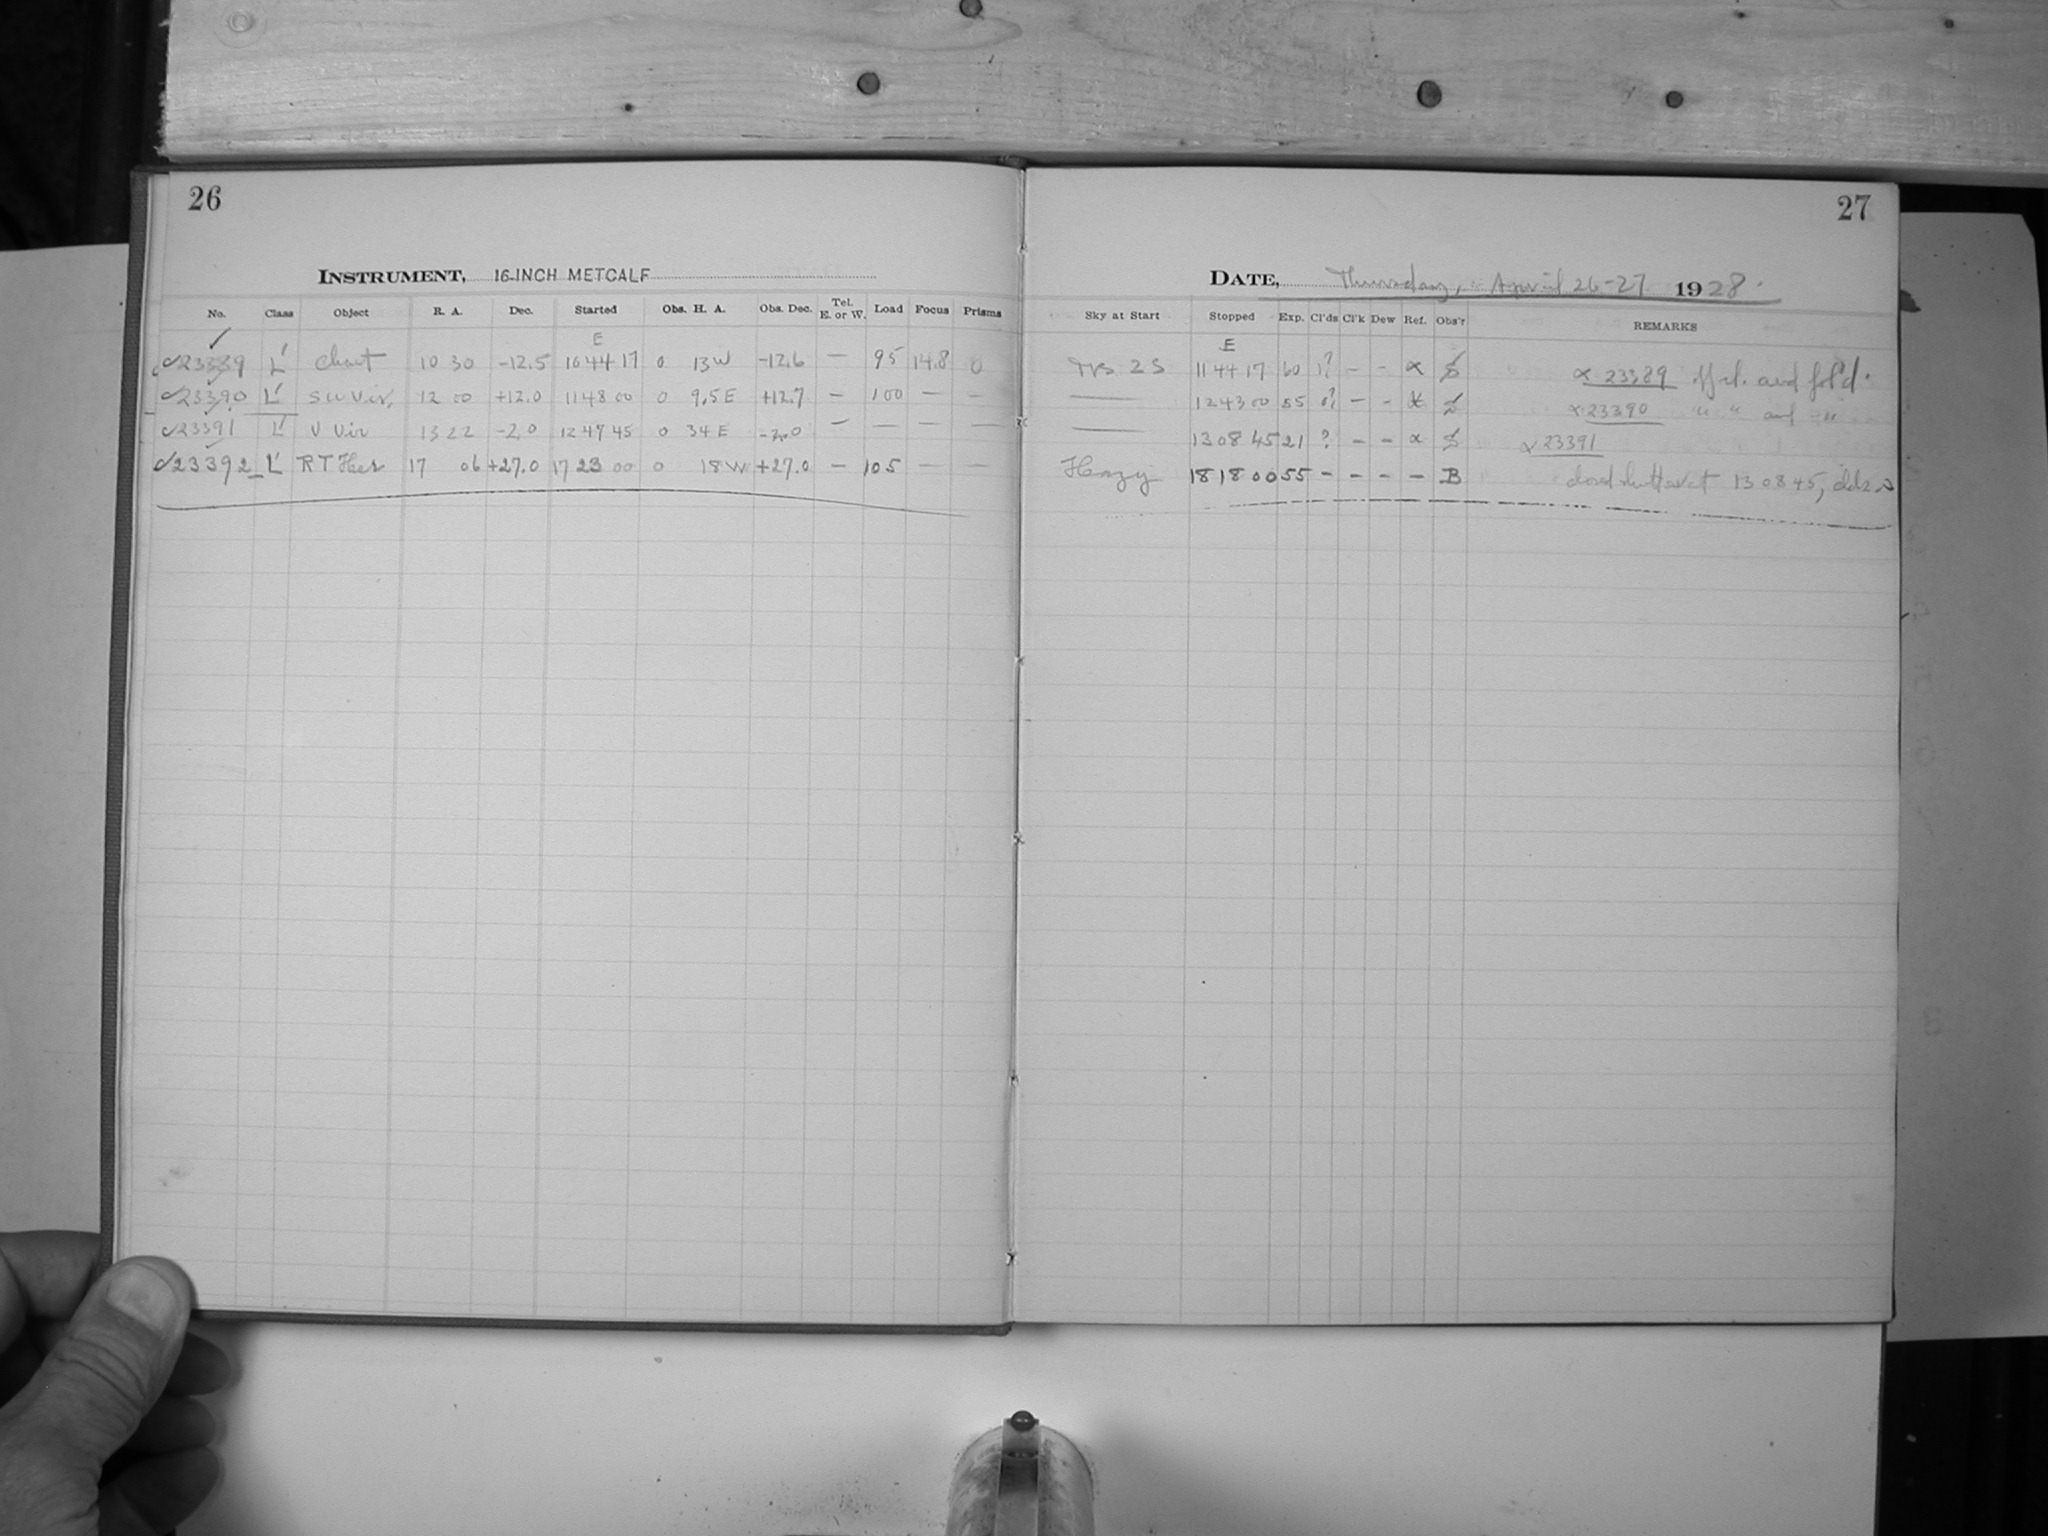 26
INSTRUMENT, 16-INCH METCALF
No. Class Object R. A. Dec. Started Obs. H. A. Obs. Dec. Tel. E. or W. Load Focus Prisms
E
23389 L' Chart 10 30 -12.5 10 44 17 0 13 W -12.6 — 95 14.8 0
23390 L' SU Vir. 12 00 +12.0 11 48 00 0 9.5 E +12.7 — 100 — —
23391 L' V Vir 13 22 -2.0 12 47 45 0 34 E -2.0 — — — —
23392 L' RT Her 17 06 +27.0 17 23 00 0 18 W +27.0 — 105 — —
27
DATE, Thursday, April 26-27 1928.
Sky at Start Stopped Exp. Cl'ds Cl'k Dew Ref. Obs'r REMARKS
E
2 S 11 44 17 60 1? - - α α 23389 and
12 43 00 55 0? - - α 23390 " " and "
13 08 45 21 ? - - α α 23391
Hazy 18 18 00 55 - - - - B closed shutter at 13 08 45,